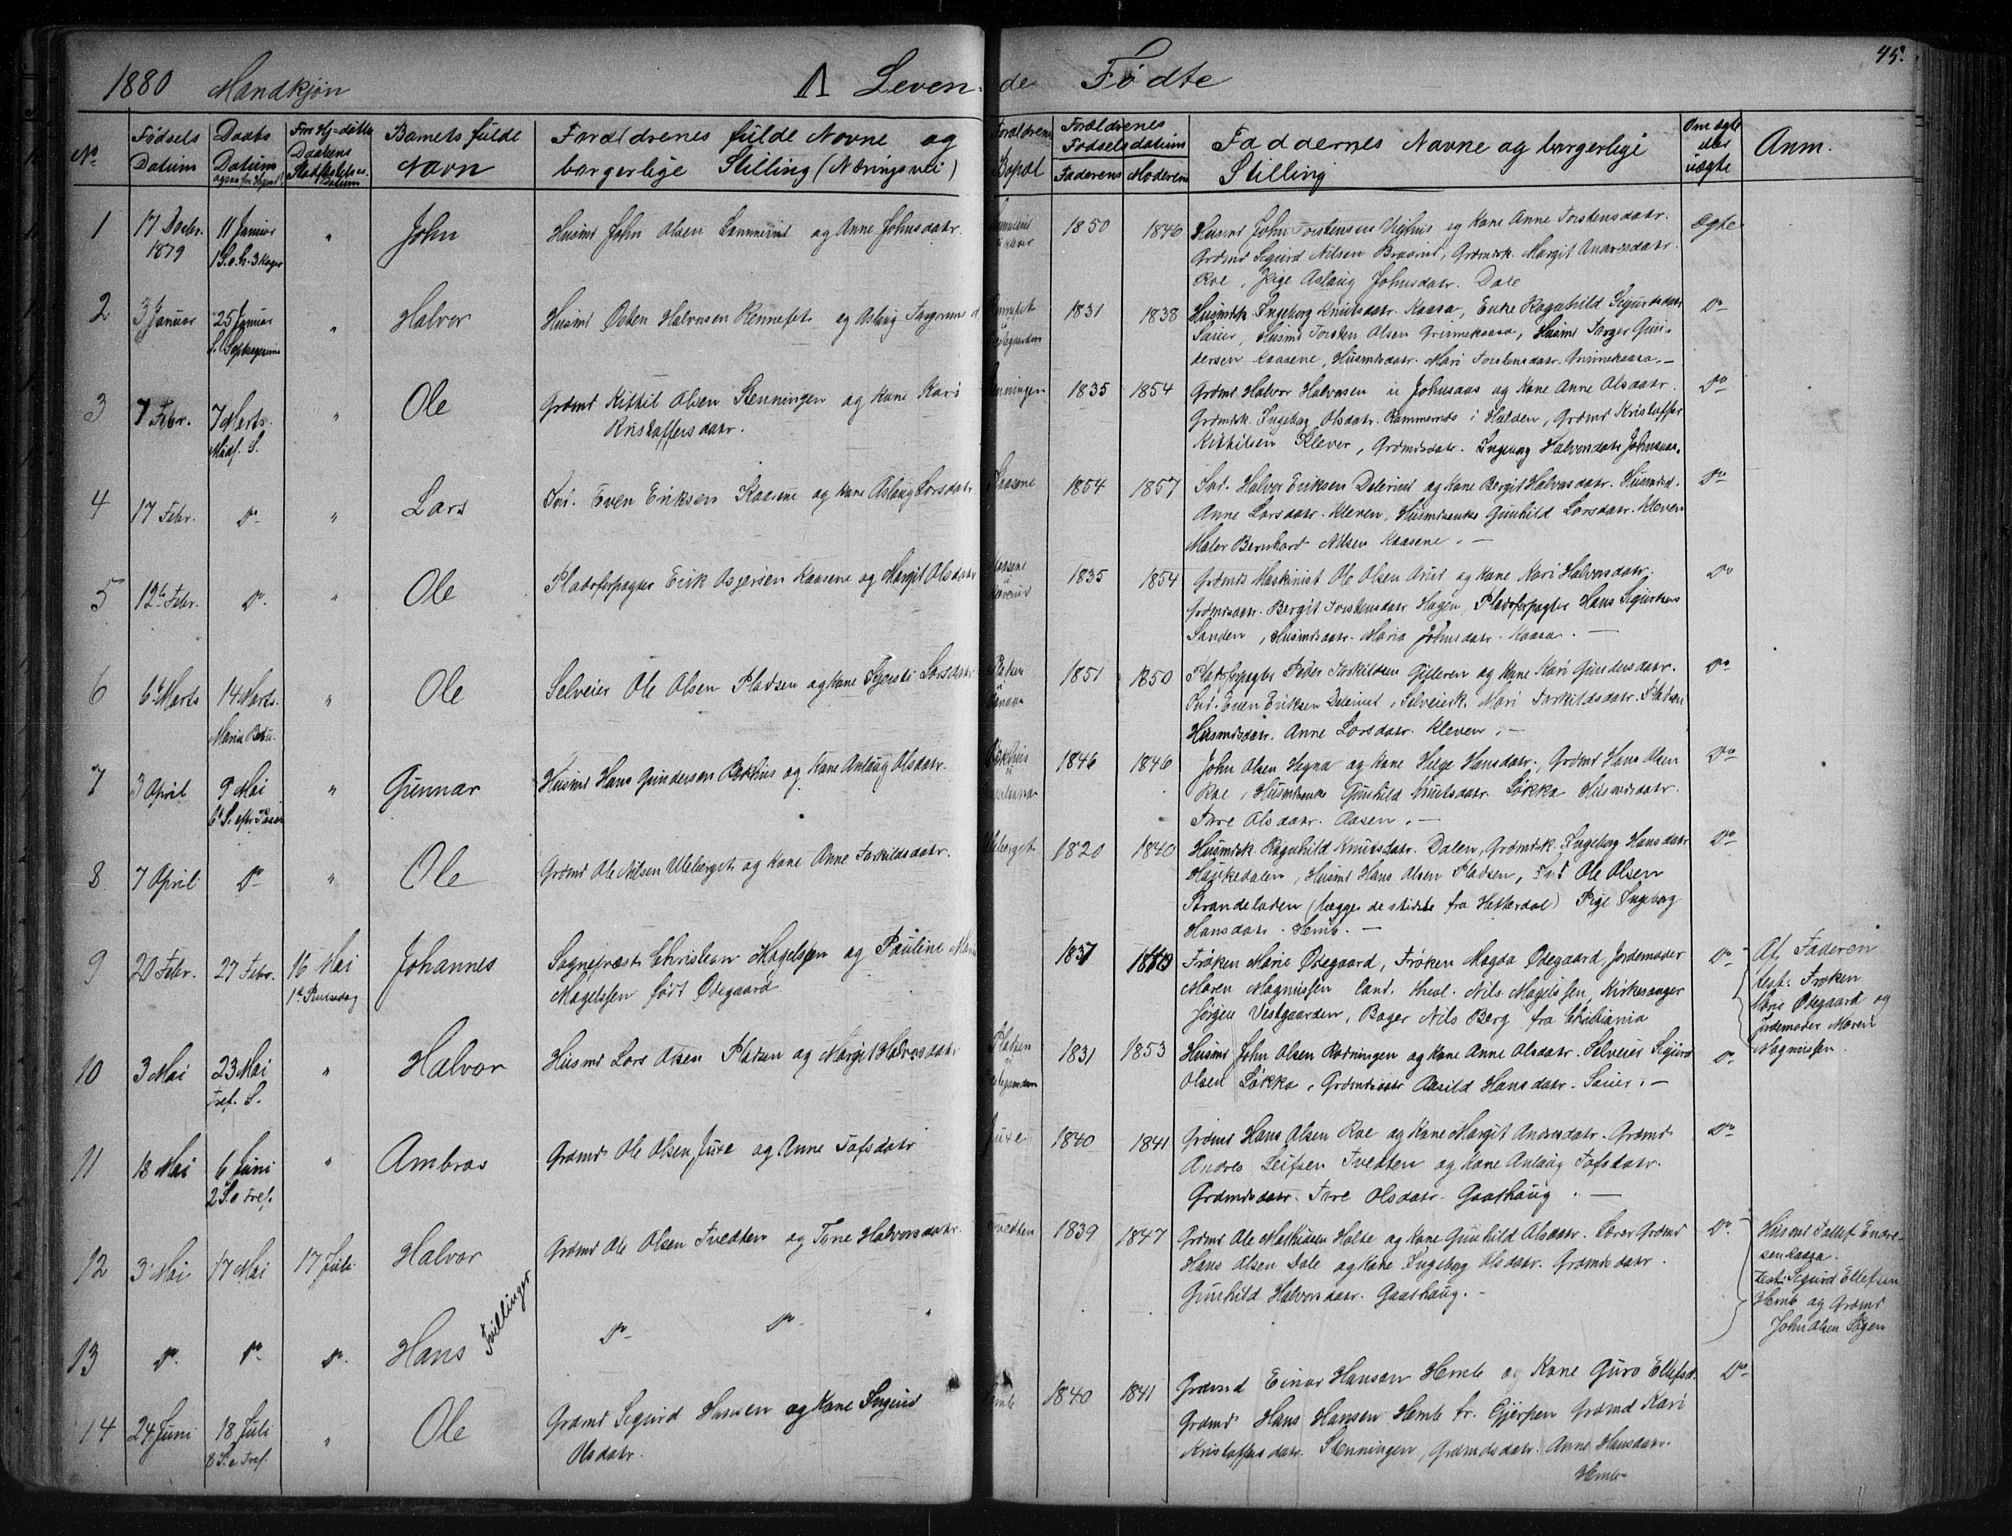 1880 Mandkjøn A Leven de Fødte 45.
No
Fødsels Datum
Daabs Datum
Barnets fulde Navn
Forældrenes fulde Navne og
borgerlige Stilling (Næringsvei)
Forældrenes Bopæl
Forældrenes Fødselsdatum
Faderens Moderens
Faddernes Navne og borgerlige
Stilling
Om ægte eller uægte
Anm.
1 17 Decbr. 1879 11 Januar 1 S. e. H. 3 Konger " John
Husmd John Olsen og Anne Johnsdatr
1850 1846
Husmd John Torstensen og Kone Anne Torstensdatr.
Grdmd Sigurd Nilsen Grdmdsk. Margit
Roe, Pige Aslaug Johnsdatr. Dale
Ægte
2 3 Januar 25 Januar S. Septuagesima " Halvor
Husmd Østen Halvorsen og Aslaug
1831 1838
Husmdsk Ingeborg Knutsdatr. Kaasa, Enke Ragnhild Sigurdsdatr
Sauer, Husmd Torsten Olsen Grinnekaasa, Husmd Torger Gun-
dersen Kaasene, Husmdsdatr. Mari Torstensdatr. Grinnekaasa. -
Do
3 7 Febr. 7 Marts. Midf. S. " Ole
Grdmd Kittil Olsen Stenningen og Kone Kari
Kristoffersdatr.
1835 1854
Grdmd Halvor Halvorsen Johnsaas og Kone Anne Olsdatr.
Grdmdsk. Ingeborg Olsdatr. i Halden, Grdmd Kristoffer
Kittilsen Klever, Grdmdsdatr. Ingeborg Halvorsdatr Johnsaas.
Do
4 17 Febr. Do " Lars
Ind. Even Eriksen Kaasene og Kone Aslaug Larsdatr
Kaasene 1854 1857
Ind. Halvor Eriksen Delerud og Kone Bergit Halvorsdatr. Husmdsd.
Anne Larsdatr. Kleven, Husmdsenke Gunhild Larsdatr. Kleven
Maler Bernhard Nilsen Kaasene. -
Do
5 12te Febr. Do. " Ole
Pladsforpagter Erik Asjersen Kaasene og Margit Olsdatr
1835 1854
Maskinist Ole Olsen og Kone Kari Halvorsdatr.
Bergit Torstensdatr Hagen, Pladsforpagter Hans Sigurdsen
Sanden, Husmdsdatr. Maria Johnsdatr. Kaasa. -
Do
6 6te Marts 14 Marts. Mariæ Beb. " Ole
Selveier Ole Olsen Pladsen og Kone Kjersti Larsdatr
1851 1850
Pladsforpagter Peder Torkildsen Gilleren og Kone Kari Gundersdatr.
Ind. Even Eriksen Delerud, Selveierk. Mari Torkildsdatr. Pladsen
Husmdsdatr. Anne Larsdatr. Kleven. -
Do
7 3 April 9 Mai 6te S. efter Paaske " Gunnar
Husmd Hans Gundersen Bekhus og Kone Anlaug Olsdatr.
1846 1846
John Olsen Hegna og Kone Helge Hansdatr., Grdmd Hans Olsen
Roe, Husmdsenke Gunhild Knutsdatr. Løkka Husmdsdatr.
Tore Olsdatr. Aasen. -
Do
8 7 April Do " Ole
Grdmd Ole Nilsen Uleberget og Kone Anne Torkildsdatr.
Uleberget 1820 1840
Husmdsk. Ragnhild Knutsdatr. Dalen, Grdmdsk. Ingeborg Hansdatr
Haukedalen, Husmd Hans Olsen Pladsen, Ole Olsen
Strandeladen (begge de sidste fra Hetterdal) Pige Ingeborg
Hansdatr. Hemb. -
Do
9 20 Febr. 27 Febr. 16 Mai 1ste Pinsedag Johannes
Sognepræst Christian Magelssen og Pauline
Magelssen født Ødegaard
1837
Frøken Marie Ødegaard, Frøken Magda Ødegaard, Jordemoder
Maren Magnussen Cand. theol. Nils Magelssen, Kirkesanger
Jørgen Vestgaarden, Bager Nils Berg fra Christiania
Do
Af Faderen
test. Frøken
Marie Ødegaard og
Jordemoder Maren
Magnussen.
10 3 Mai 23 Mai Tref. S. " Halvor
Husmd Lars Olsen Pladsen og Margit Halvorsdatr
Pladsen 1831 1853
Husmd John Olsen Rodningen og Kone Anne Olsdatr. Selveier Sigurd
Olsen Løkka, Grdmdsdatr Aasild Hansdatr. Sauer. -
Do
11 13 Mai 6 Juni 2 S. e Tref. " Ambros
Grdmd. Ole Olsen Juve og Anne Tofsdatr
Juve 1840 1841
Grdmd Hans Olsen Roe og Kone Margit Andersdatr. Grdmd.
Andres Leifsen Tvedten og Kone Anlaug Tofsdatr.
Grdmdsdatr. Tore Olsdatr. Gaashaug. -
Do
12 3 Mai 17 Mai 17 Juli Halvor
Tvillinger
Grdmd Ole Olsen Tvedten og Tone Halvorsdatr.
Tvedten 1839 1847
Grdmd Ole Mathisen Holte og Kone Gunhild Olsdatr. Lærer Grdmd
Hans Olsen Dale og Kone Ingeborg Olsdatr. Grdmdsdatr.
Gunhild Halvorsdatr. Gaashaug. -
Do
Husmd Tollef Endre-
sen Kaasa.
Test: Sigurd Ellefsen
Hemb og Grdmd
John Olsen
13 Do. Do Do. Hans
Do Do "
14 24 Juni 18 Juli 8 S. e Tref. " Ole
Grdmd Sigurd Hansen og Kone Ingerid
Olsdatr.
Hemb 1840 1841
Grdmd Einar Hansen Hemb og Kone Guro Ellefsd.
Grdmd Hans Hansen Hemb fr. Gjerpen Grdmd Kari
Kristoffersdatr. Stenningen, Grdmdsdatr. Anne Hansdatr.
Hemb
Do